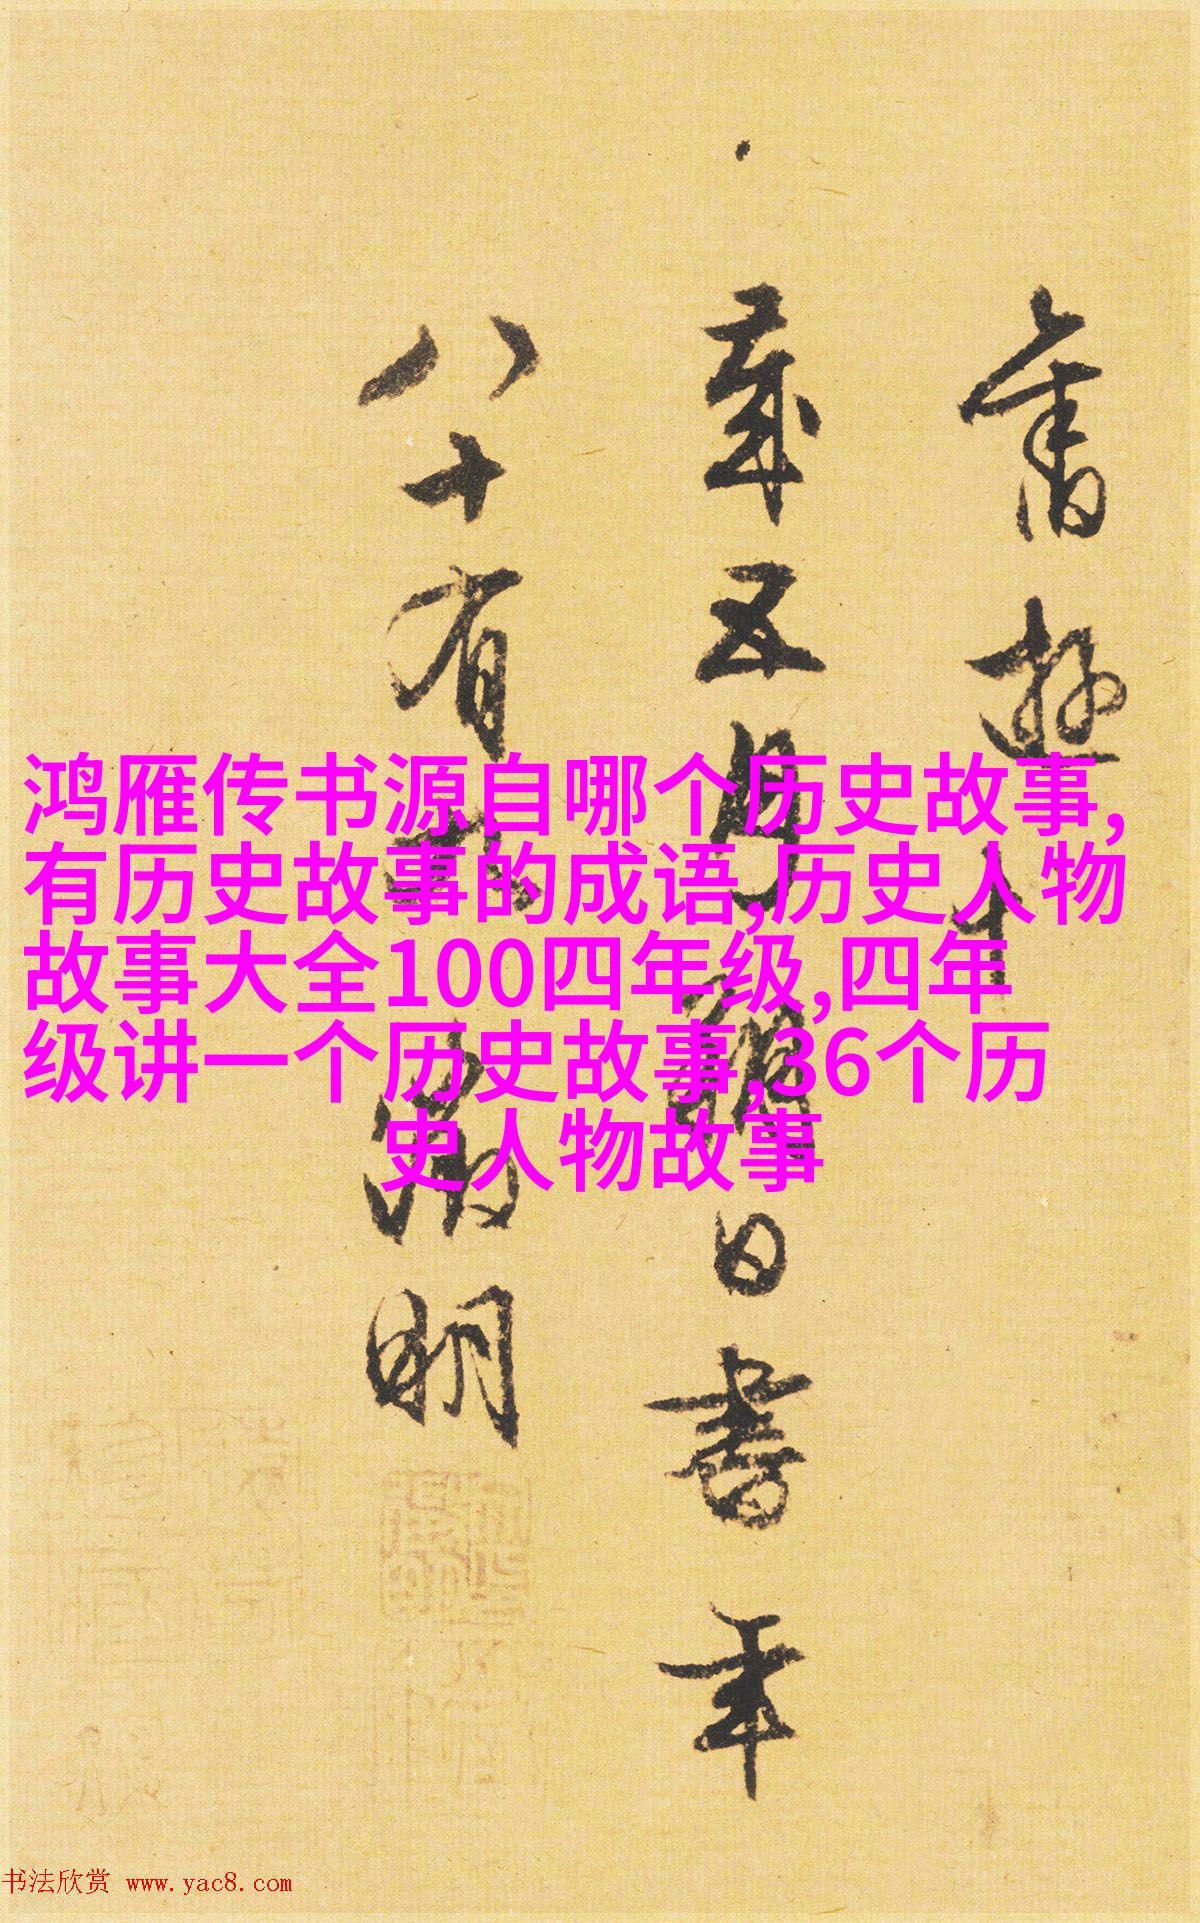 鸿雁传书源自哪个历史故事,
有历史故事的成语,历史人物
故事大全100四年级,四年
级讲一个历史故事,36个历
史人物故事
旧游十
岁五月朔日書年
八十有 徵明
书法欣赏 www.yac8.com